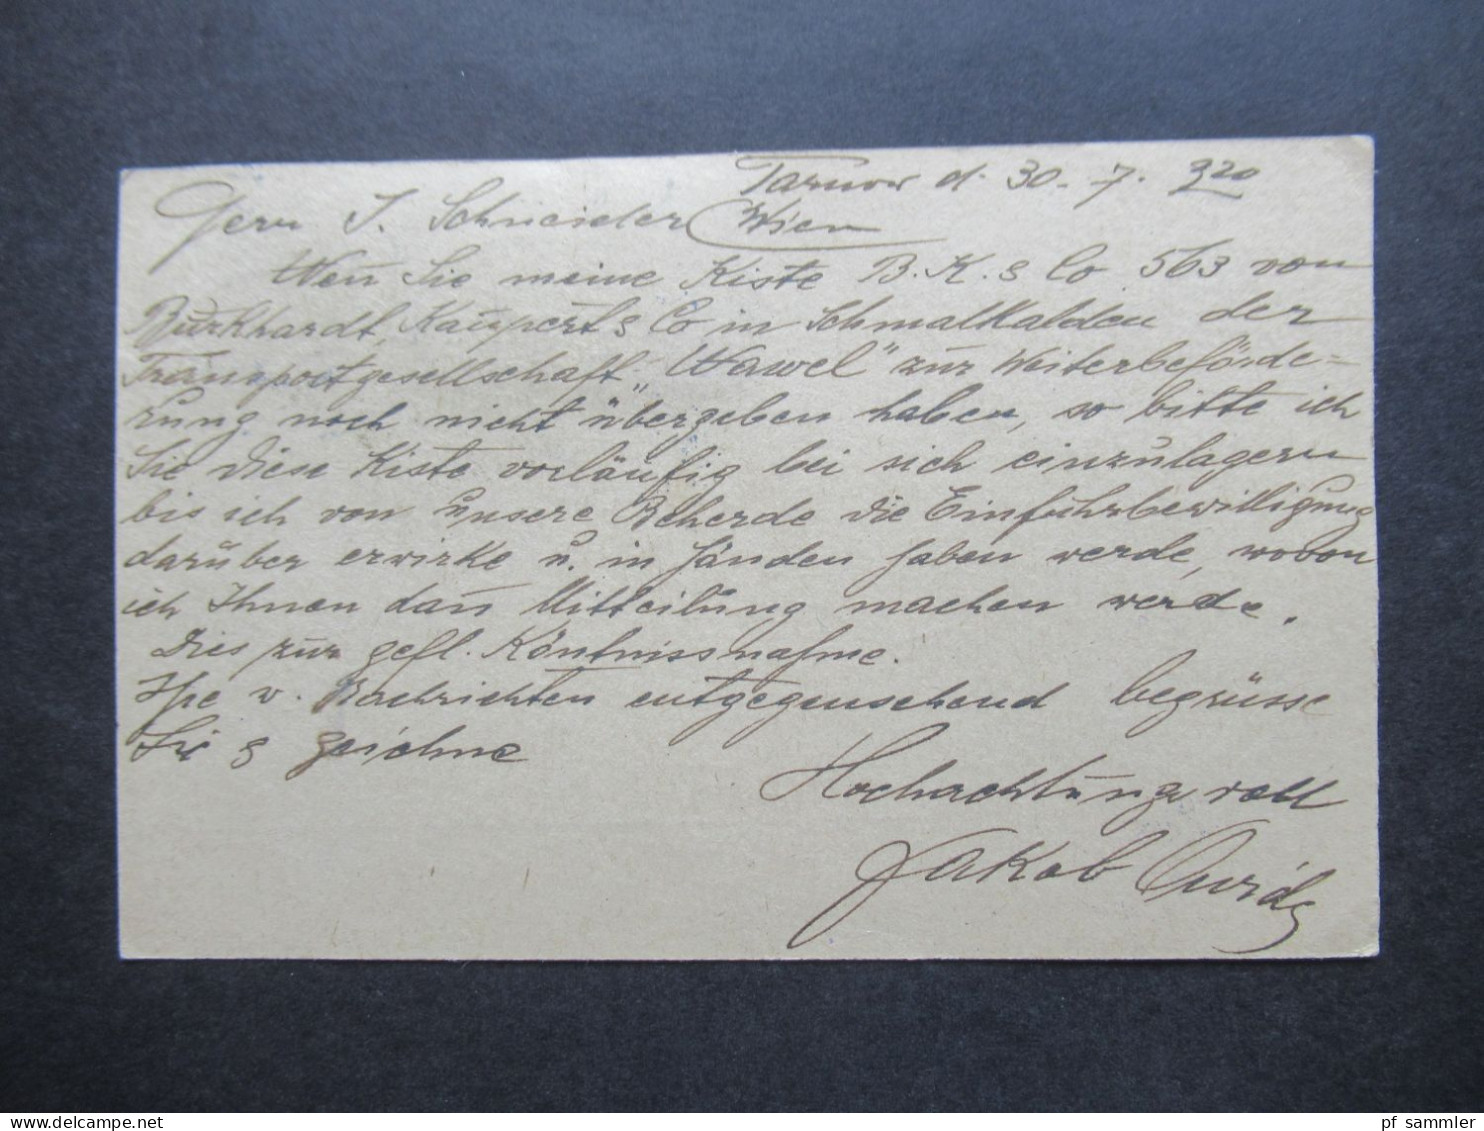 Tarnow d. 30. 7. 920
Herrn J. Schneider Wien
Wen̄ Sie meine Kiste B. K. & Co 563 von
Burkhardt, Kaupert & Co in Schmalkalden der
Transportgesellschaft „Wawel“ zur Weiterbeförde=
rung noch nicht übergeben haben, so bitte ich
Sie diese Kiste vorläufig bei sich einzulagern
bis ich von unsere Beherde die Einfuhrbewilligung
darüber erwirke u. in Händen haben werde, wovon
ich Ihnen dan̄ Mitteilung machen werde.
Dies zur gefl. Köntnissnahme.
Ihre w. Nachrichten entgegensehend begrüsse
Sie & zeichne
Hochachtungsvoll
Jakob
pf_sammler
www.delcampe.net